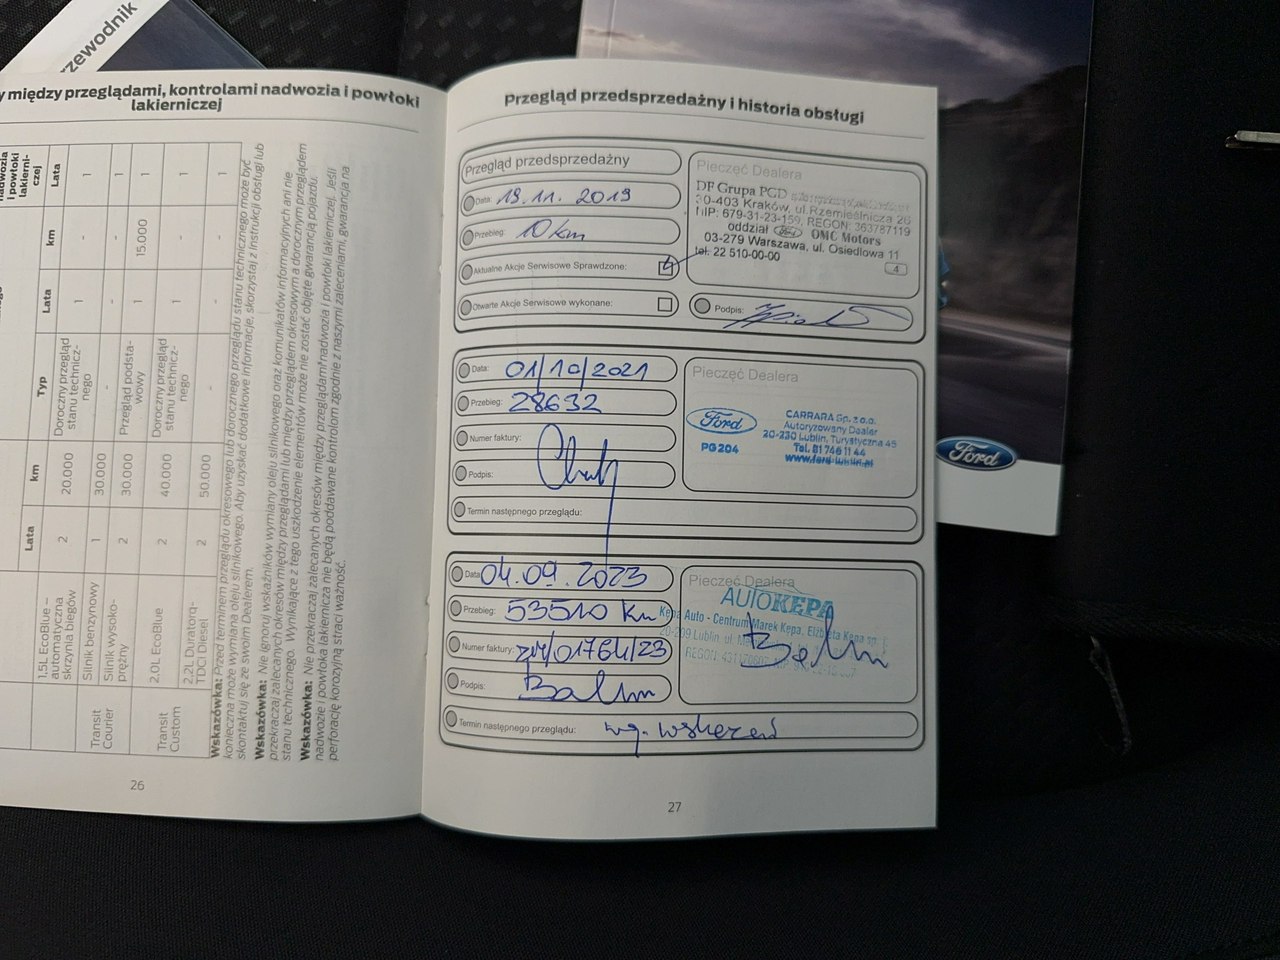 zewodnik
y między przeglądami, kontrolami nadwozia i powłoki
lakierniczej
nadwozia
i powłoki
lakierni-
czej
Lata
km
Lata
Typ
km
Lata
1
-
1
Doroczny przegląd
stanu technicz-
nego
20.000
2
1.5L EcoBlue –
automatyczna
skrzynia biegów
1
-
-
-
30.000
1
Silnik benzynowy
Transit
Courier
1
15.000
1
Przegląd podsta-
wowy
30.000
2
Silnik wysoko-
prężny
1
-
1
Doroczny przegląd
stanu technicz-
nego
40.000
2
2.0L EcoBlue
Transit
Custom
1
-
-
-
50.000
2
2.2L Duratorq-
TDCi Diesel
Wskazówka: Przed terminem przeglądu okresowego lub dorocznego przeglądu stanu technicznego może być
konieczna może wymiana oleju silnikowego. Aby uzyskać dodatkowe informacje, skorzystaj z instrukcji obsługi lub
skontaktuj się ze swoim Dealerem.
Wskazówka: Nie ignoruj wskaźników wymiany oleju silnikowego oraz komunikatów informacyjnych ani nie
przekraczaj zalecanych okresów między przeglądami lub między przeglądem okresowym a dorocznym przeglądem
stanu technicznego. Wynikające z tego uszkodzenie elementów może nie zostać objęte gwarancją pojazdu.
Wskazówka: Nie przekraczaj zalecanych okresów między przeglądami nadwozia i powłoki lakierniczej. Jeśli
nadwozie i powłoka lakiernicza nie będą poddawane kontrolom zgodnie z naszymi zaleceniami, gwarancja na
perforację korozyjną straci ważność.
26
Przegląd przedsprzedażny i historia obsługi
Przegląd przedsprzedażny
Data: 19.11.2019
Przebieg: 10 km
Aktualne Akcje Serwisowe Sprawdzone:
Otwarte Akcje Serwisowe wykonane:
Pieczęć Dealera
DF Grupa PGD
30-403 Kraków, ul. Rzemieślnicza 26
NIP: 679-31-23-159, REGON: 363787119
oddział Ford OMC Motors
03-279 Warszawa, ul. Osiedlowa 11
tel. 22 510-00-00
4
Podpis:
Data: 01/10/2021
Przebieg: 28632
Numer faktury:
Podpis:
Termin następnego przeglądu:
Pieczęć Dealera
Ford
PG204
CARRARA Sp. z o.o.
Autoryzowany Dealer
20-230 Lublin, Turystyczna 45
Tel. 81 746 11 44
www.ford-lublin.pl
Data: 04.09.2023
Przebieg: 53510 km
Numer faktury: /01764/23
Podpis:
Termin następnego przeglądu: wg. wskazań
Pieczęć Dealera
AUTOKĘPA
Kępa Auto - Centrum Marek Kępa, Elżbieta Kępa sp. j.
20-209 Lublin, ul.
REGON:
27
Ford